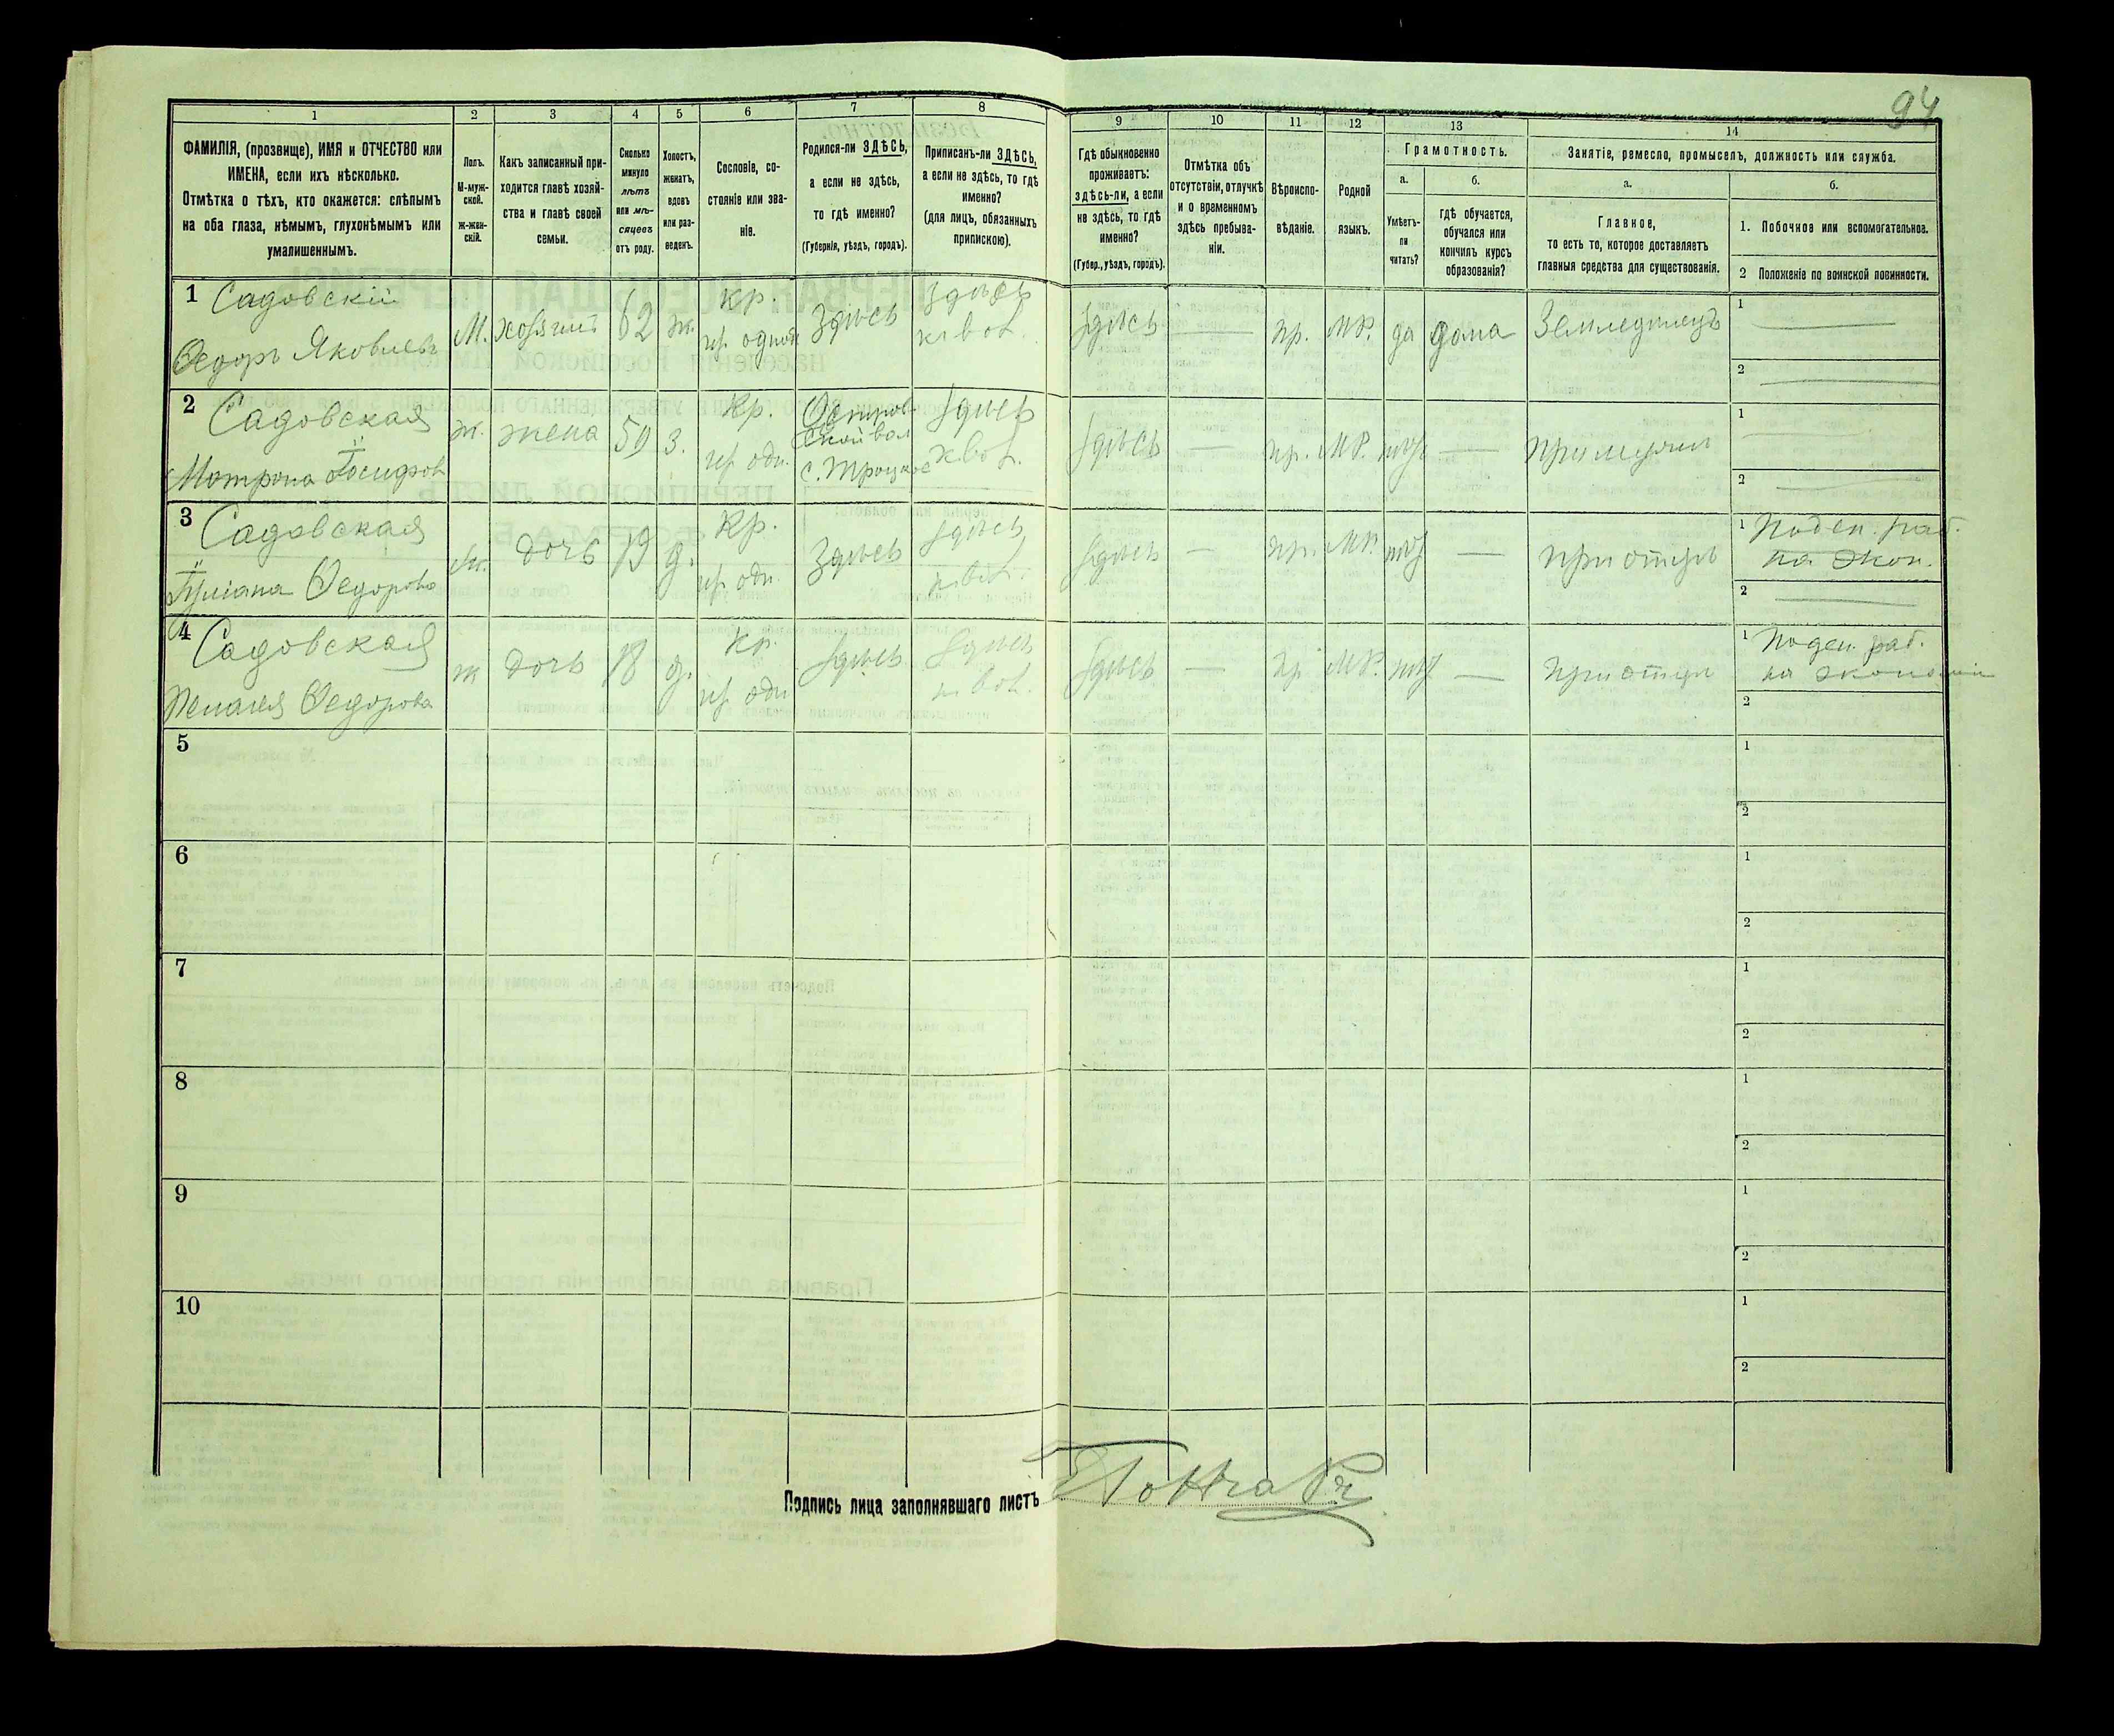 94
1
2
3
4
5
6
7
8
9
10
11
12
13
14
ФАМИЛІЯ, (прозвище), ИМЯ и ОТЧЕСТВО или
ИМЕНА, если ихъ нѣсколько.
Отмѣтка о тѣхъ, кто окажется: слѣпымъ
на оба глаза, нѣмымъ, глухонѣмымъ или
умалишеннымъ.
Полъ.
М-муж-
ской.
Ж-жен-
скій.
Какъ записанный при-
ходится главѣ хозяй-
ства и главѣ своей
семьи.
Сколько
минуло
лѣтъ
или мѣ-
сяцевъ
отъ роду.
Холостъ,
женатъ,
вдовъ
или раз-
веденъ.
Сословіе, со-
стояніе или зва-
ніе.
Родился-ли ЗДѢСЬ,
а если не здѣсь,
то гдѣ именно?
(Губернія, уѣздъ, городъ).
Приписанъ-ли ЗДѢСЬ,
а если не здѣсь, то гдѣ
именно?
(для лицъ, обязанныхъ
припискою).
Гдѣ обыкновенно
проживаетъ:
здѣсь-ли, а если
не здѣсь, то гдѣ
именно?
(Губер., уѣздъ, городъ).
Отмѣтка объ
отсутствіи, отлучкѣ
и о временномъ
здѣсь пребыва-
ніи.
Вѣроиспо-
вѣданіе.
Родной
языкъ.
Грамотность.
а.
Умѣетъ-
ли
читать?
б.
гдѣ обучается,
обучался или
кончилъ курсъ
образованія?
Занятіе, ремесло, промыселъ, должность или служба.
а.
Главное,
то есть то, которое доставляетъ
главныя средства для существованія.
б.
1. Побочное или вспомогательное.
2 Положеніе по воинской повинности.
1 Садовскій
Ѳедоръ Яковлевъ
М. хозяинъ 62 ж. Кр. Здѣсь Здѣсь
Здѣсь — пр. МР. да дома Земледѣлецъ
1
2
2 Садовская
Матрона Іосифов
ж. жена 59 з. Кр. Остров-
ской вол
с. Троцкое
Здѣсь
Здѣсь — пр. МР. — при мужѣ
1
2
3 Садовская
Ѳедорова
ж. дочь 19 д. Кр. Здѣсь Здѣсь
Здѣсь — пр. МР. — при отцѣ
1 Поден. раб.
на экон.
2
4 Садовская
Пелагея Ѳедорова
ж дочь 18 д. Кр. Здѣсь Здѣсь
Здѣсь — пр МР. — при отцѣ
1 Поден. раб.
на экономіи
2
5
1
2
6
1
2
7
1
2
8
1
2
9
1
2
10
1
2
Подпись лица заполнявшаго листъ